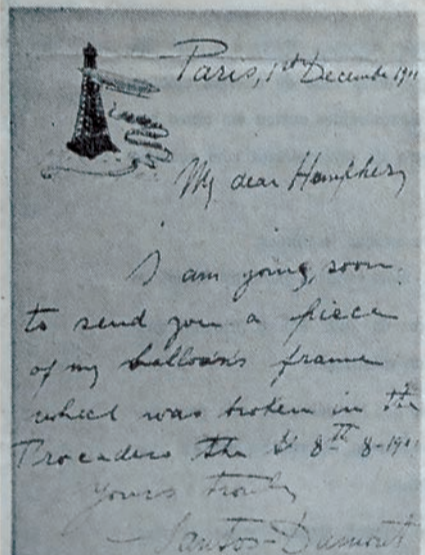 Paris, 1st December 1901
My dear Humphery
I am going, soon
to send you a piece
of my balloon's frame
which was broken in the
Trocadero the 8th 8-1901
Yours truly
Santos-Dumont